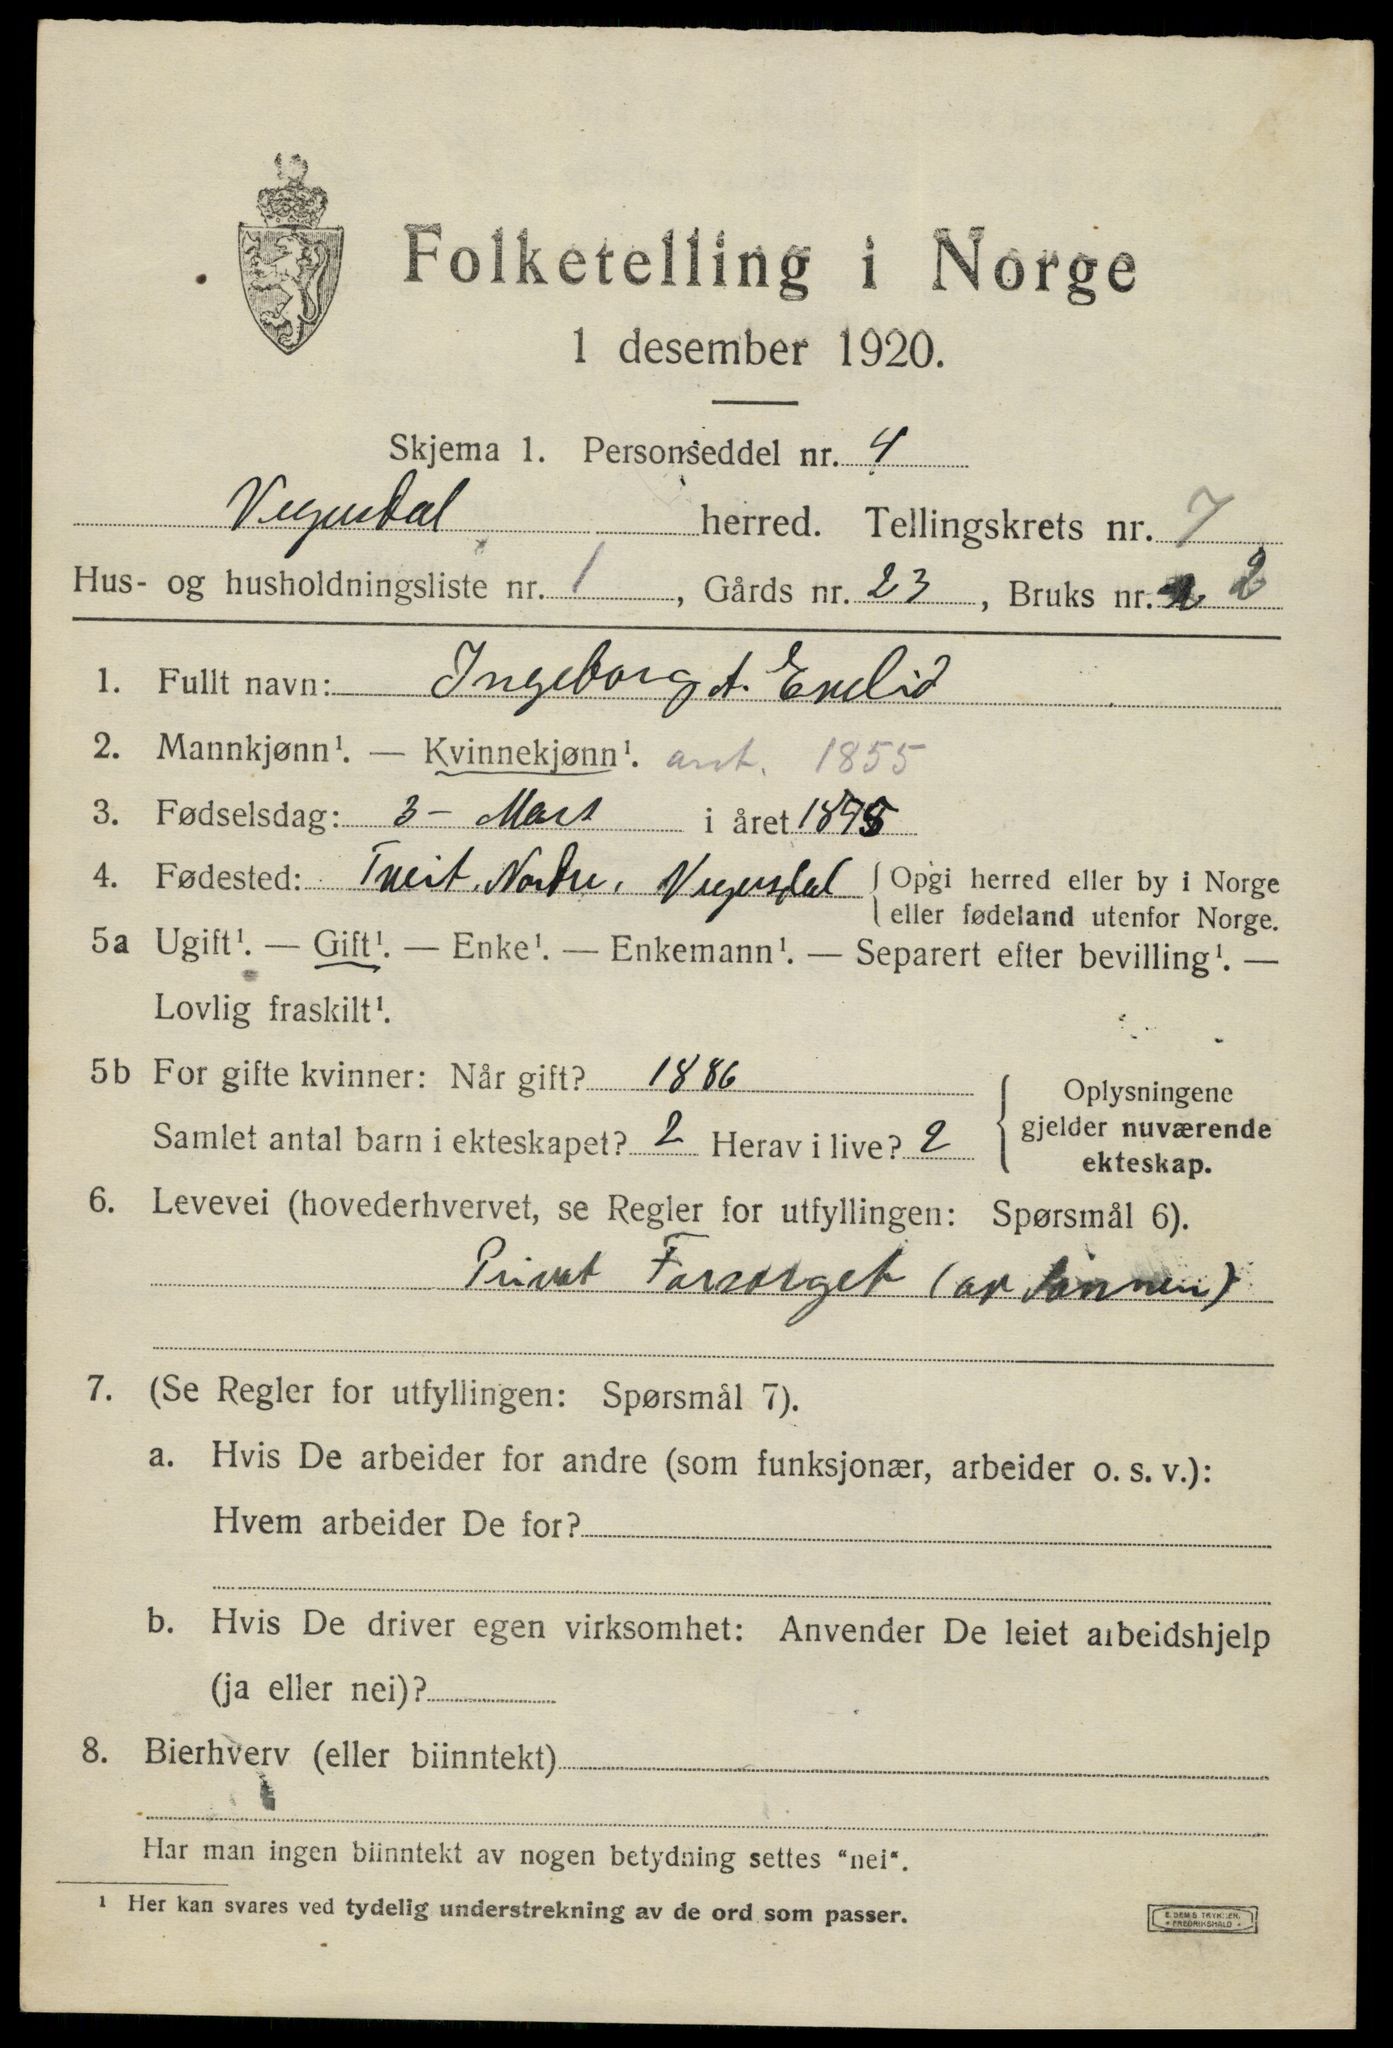 Folketelling i Norge
1 desember 1920.
Skjema 1. Personseddel nr. 4
Vegusdal herred. Tellingskrets nr. 7
Hus- og husholdningsliste nr. 1, Gårds nr. 23, Bruks nr. 2
1. Fullt navn: Ingeborg A.
2. Mannkjønn¹. — Kvinnekjønn¹. ant. 1855
3. Fødselsdag: 3 – Mars i året
4. Fødested: Tveit, Nordre, Vegusdal { Opgi herred eller by i Norge
eller fødeland utenfor Norge.
5a Ugift¹. — Gift¹. — Enke¹. — Enkemann¹. — Separert efter bevilling¹. —
Lovlig fraskilt¹.
5b For gifte kvinner: Når gift? 1886
Samlet antal barn i ekteskapet? 2 Herav i live? 2
Oplysningene
gjelder nuværende
ekteskap.
6. Levevei (hovederhvervet, se Regler for utfyllingen: Spørsmål 6).
Privat Forsørget (av Sønnen)
7. (Se Regler for utfyllingen: Spørsmål 7).
a. Hvis De arbeider for andre (som funksjonær, arbeider o. s. v.):
Hvem arbeider De for?
b. Hvis De driver egen virksomhet: Anvender De leiet arbeidshjelp
(ja eller nei)?
8. Bierhverv (eller biinntekt)
Har man ingen biinntekt av nogen betydning settes "nei".
¹ Her kan svares ved tydelig understrekning av de ord som passer.
FREDRIKSHALD